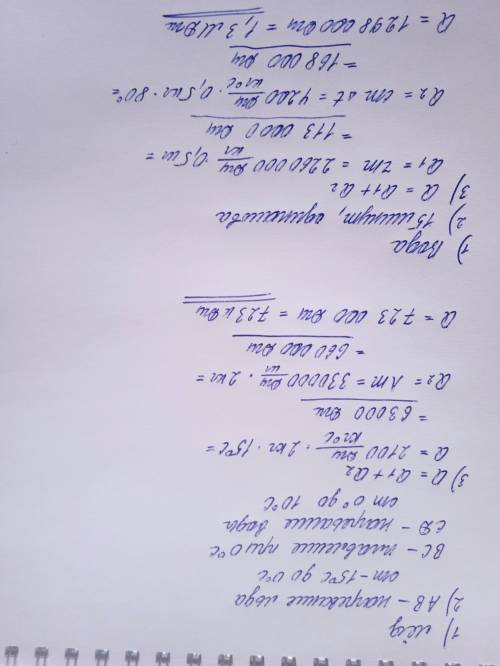 1) лёд
2) AB - нагревание льда
от -15°C до 0°C
BC - плавление при 0°C
CD - нагревание воды
от 0° до 10°C
3) Q = Q1 + Q2
Q = 2100 Дж/кг°C · 2кг · 15°C =
= 63000 Дж
Q2 = λm = 330000 Дж/кг · 2кг =
= 660 000 Дж
Q = 723 000 Дж = 723 кДж
1) Вода
2) 15 минут, одинакова
3) Q = Q1 + Q2
Q1 = rm = 2260 000 Дж/кг · 0,5кг =
= 113 0000 Дж
Q2 = cm Δt = 4200 Дж/кг°C · 0,5кг · 80° =
= 168 000 Дж
Q = 1298 000 Дж = 1,3 МДж